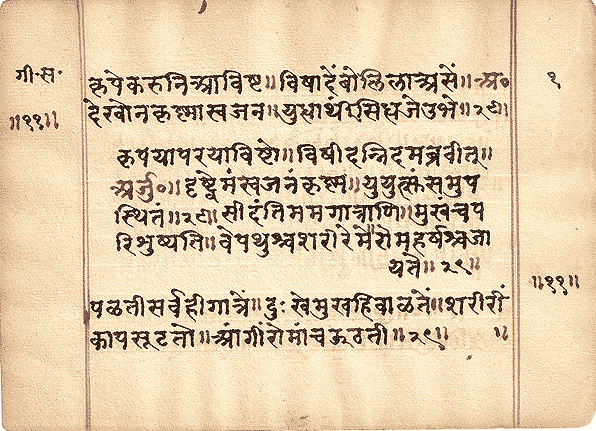 गी॰स॰
१
कृपेकरुनिआविष्ट॥विषादेंबोलिलाअसें॥अ॰
देखोनकृष्णास्वजन॥युद्धार्थीसिद्धजेउभे॥२८॥
॥११॥
कृपयापरयाविष्टो॥विषीदन्निदमब्रवीत्॥
अर्जु॰॥दृष्ट्वेमंस्वजनंकृष्ण॥युयुत्सुंसमुप
स्थितं॥२८॥सीदंतिममगात्राणि॥मुखंचप
रिशुष्यति॥वेपथुश्चशरीरेमेरोमहर्षश्चजा
यते॥२९॥
॥११॥
पळतीसर्वहीगात्रें॥दुःखेमुखहिवाळतें॥शरीरीं
कापसूटतो॥आंगींरोमांचऊठती॥२९॥ ॥